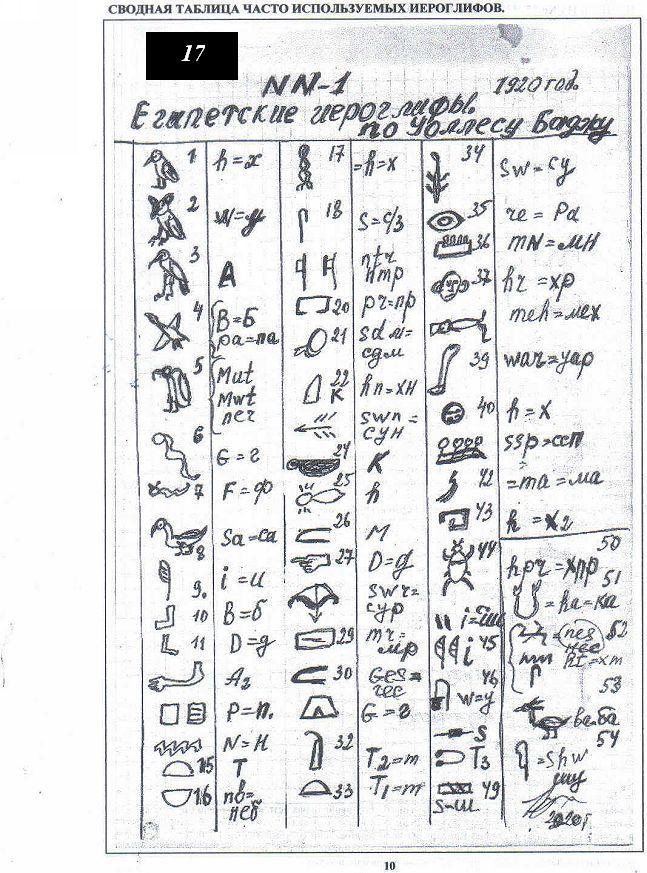 СВОДНАЯ ТАБЛИЦА ЧАСТО ИСПОЛЬЗУЕМЫХ ИЕРОГЛИФОВ.
17
NN-1 1920 год.
Египетские иероглифы.
по Уоллесу Баджу
1 h=х
2
3 А
4 B=Б
pa=па
5 Mut
Mwt
6 G=г
7 F=Ф
8 Sa=са
9. i=и
10 B=б
11 D=д
A2
P=п.
N=Н
15 Т
16 nв=
неб
17 =h=х
18 S=с/з
ntr
нтр
20 pr=пр
21 sdм=
сдм
22 К hn=хн
swn=
сун
24 К
25 h
26 М
27 D=д
swr=
сур
29 mr=
мр
30 Ges=
гес
G=г
32 T2=т
33 T1=т
34 Sw=су
35 re=Ра
36 mN=МН
37 hr=хр
meh=мех
39 war=уар
40 h=х
ssp=ссп
42 =ma=ма
43 h=х2
44 hpr=хпр
45 i
46 w=у
S
T3
49 S=ш
50
51 =ka=ка
52 =nes
нес
ht=хт
53 ва=ба
54 =shw
шу
10